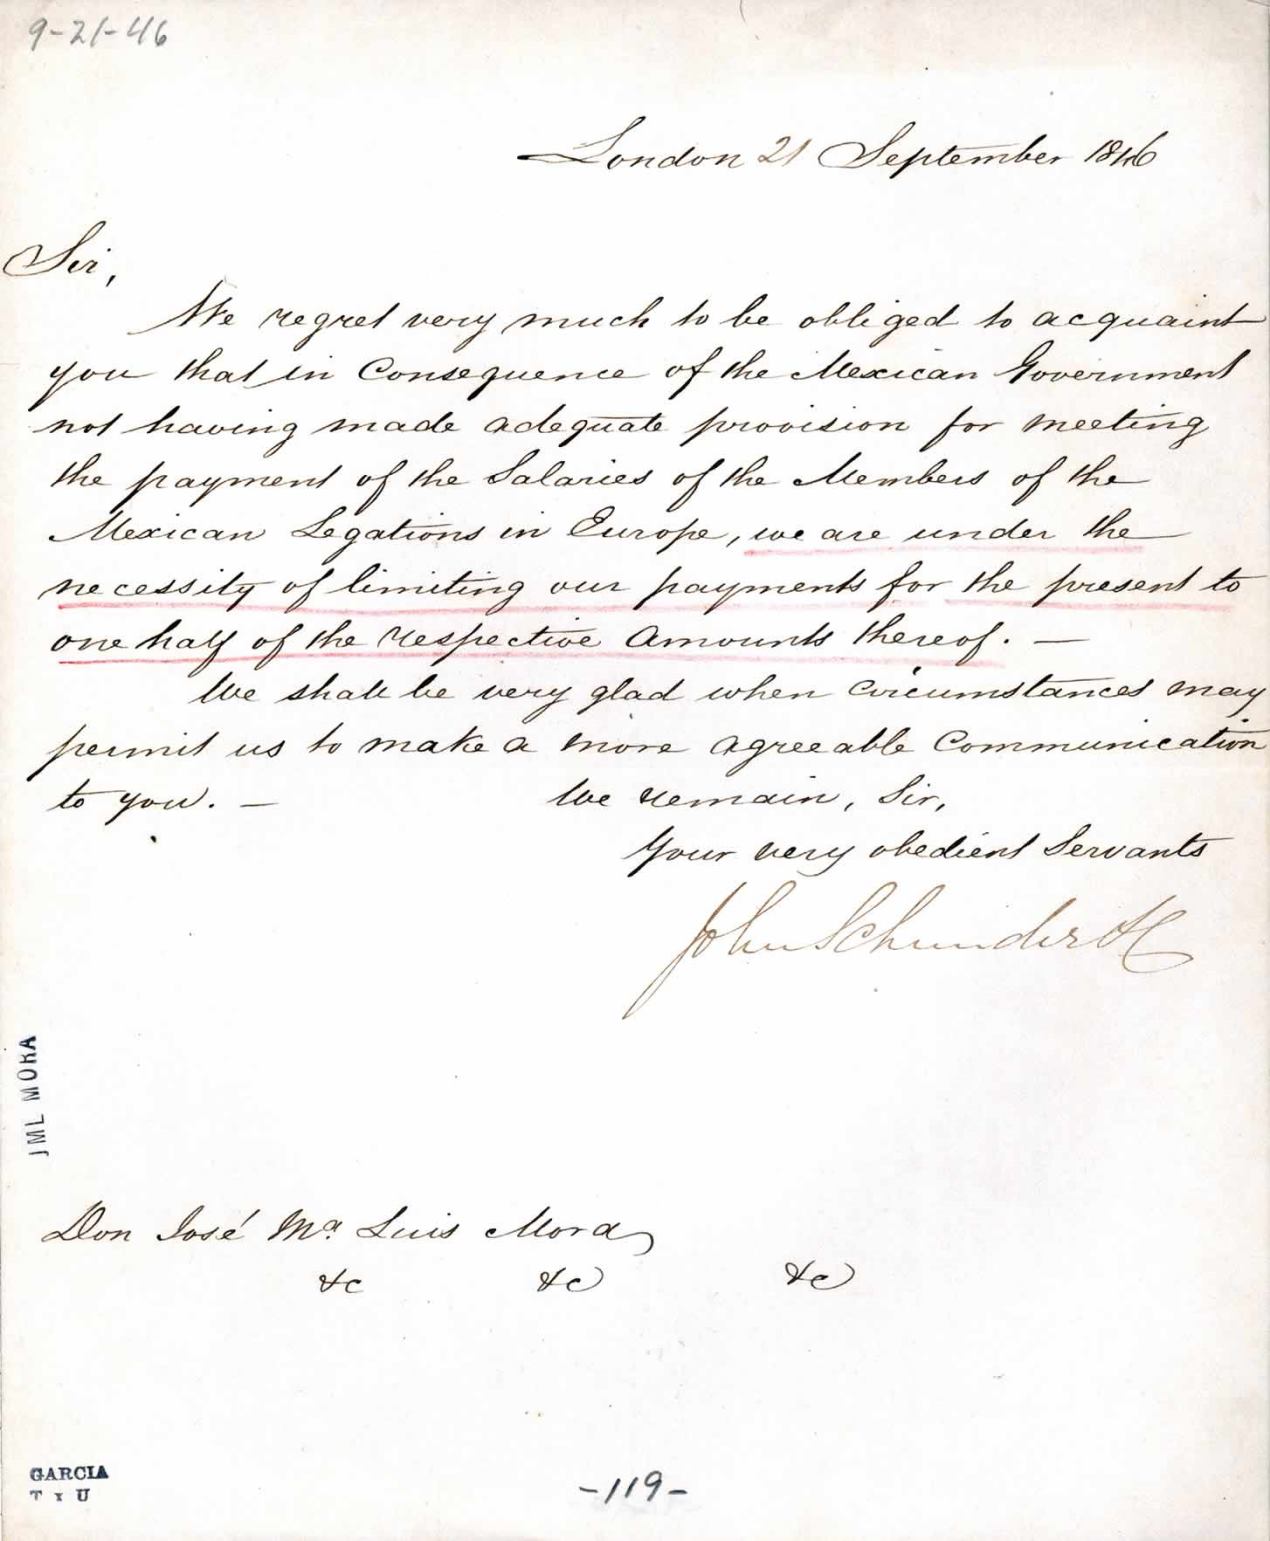 9-21-46
London 21 September 1846
Sir,
We regret very much to be obliged to acquaint
you that in Consequence of the Mexican Government
not having made adequate provision for meeting
the payment of the Salaries of the Members of the
Mexican Legations in Europe, we are under the
necessity of limiting our payments for the present to
one half of the respective Amounts thereof. —
We shall be very glad when circumstances may
permit us to make a more agreeable Communication
to you. — We remain, Sir,
Your very obedient Servants
John Schunder &C
JML MORA
Don José Mª. Luis Mora
&c &c &c
GARCIA
T x U
-119-